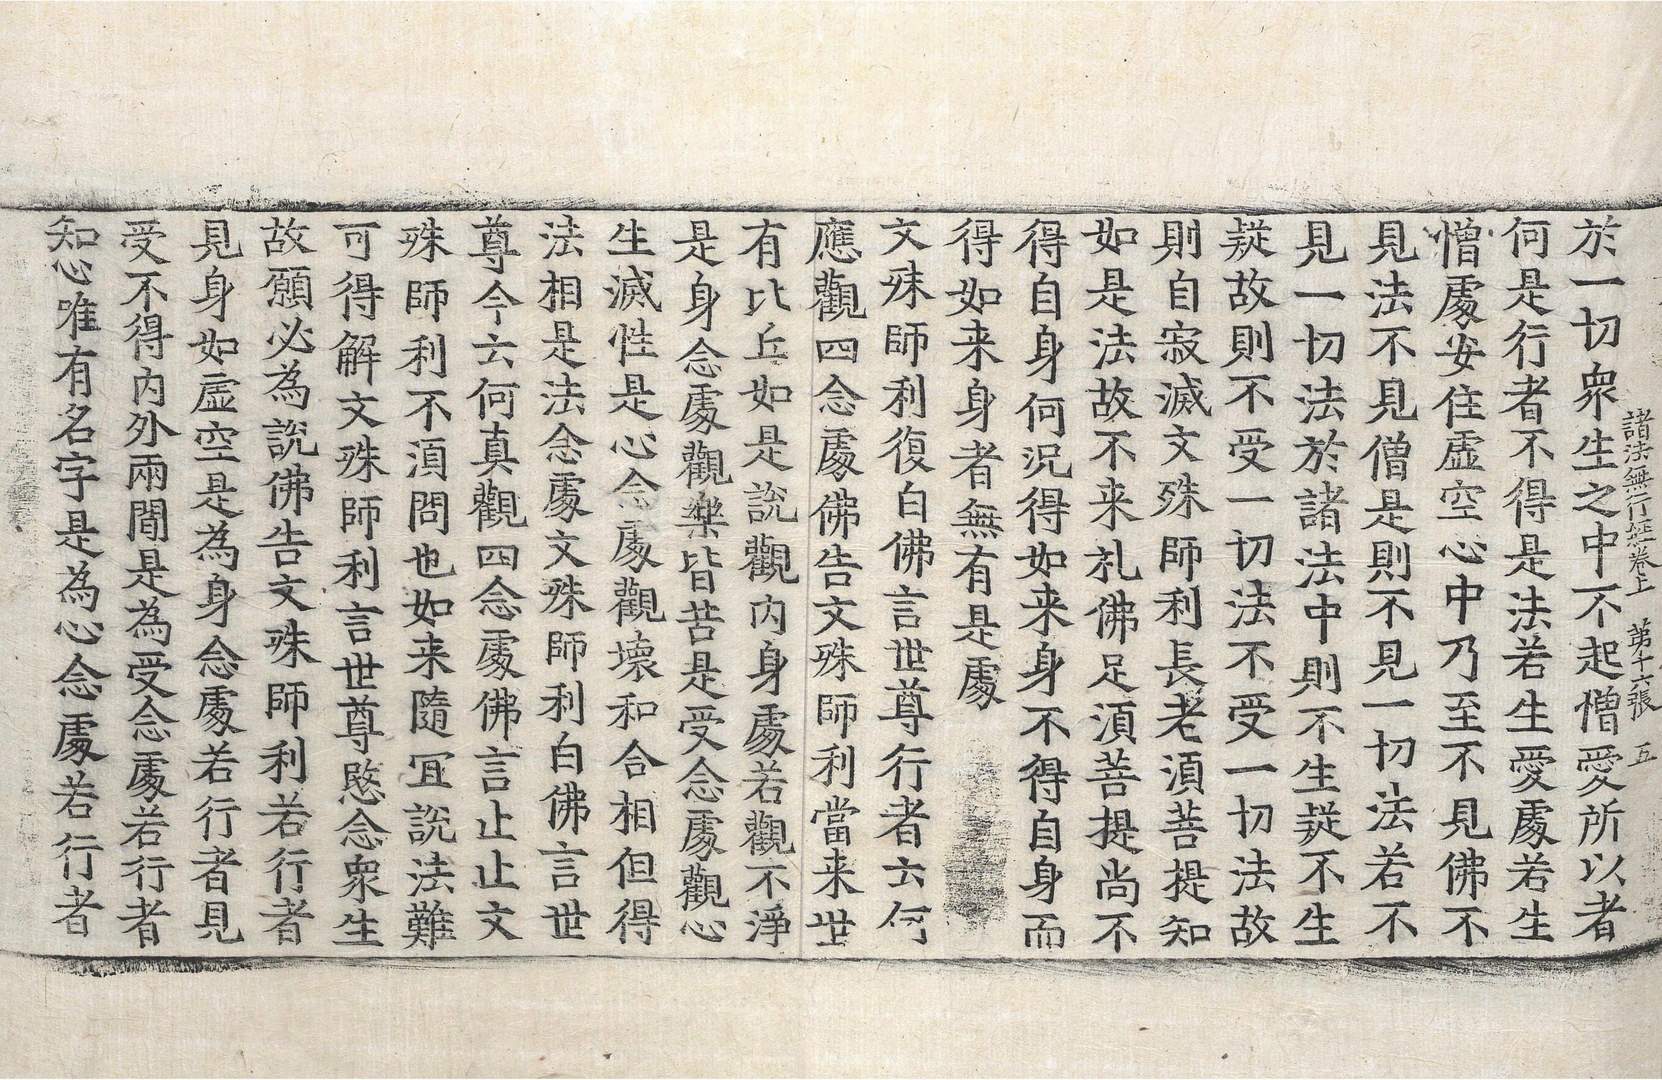 諸法無行経卷上 第十六張 五
於一切衆生之中不起憎愛所以者
何是行者不得是法若生愛處若生
憎處安住虛空心中乃至不見佛不
見法不見僧是則不見一切法若不
見一切法於諸法中則不生疑不生
疑故則不受一切法不受一切法故
則自寂滅文殊師利長老須菩提知
如是法故不来礼佛足須菩提尚不
得自身何况得如来身不得自身而
得如来身者無有是處
文殊師利復白佛言世尊行者云何
應觀四念處佛告文殊師利當来世
有比丘如是說觀内身處若觀不淨
是身念處觀樂皆苦是受念處觀心
生滅性是心念處觀壞和合相但得
法相是法念處文殊師利白佛言世
尊今云何真觀四念處佛言止止文
殊師利不湏問也如来隨冝說法難
可得解文殊師利言世尊愍念衆生
故願必為說佛告文殊師利若行者
見身如虛空是為身念處若行者見
受不得内外兩間是為受念處若行者
知心唯有名字是為心念處若行者